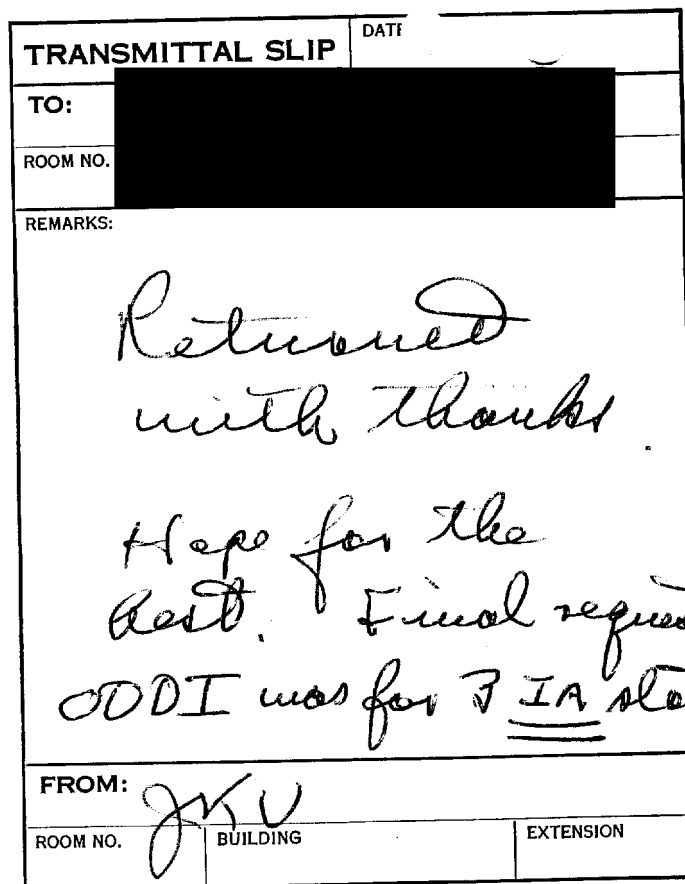 TRANSMITTAL SLIP
DATE
TO:
ROOM NO.
REMARKS:
Returned
with thanks.
Hope for the
best. Final reques
ODDI was for 3 IA slo
FROM:
JKV
ROOM NO. BUILDING EXTENSION